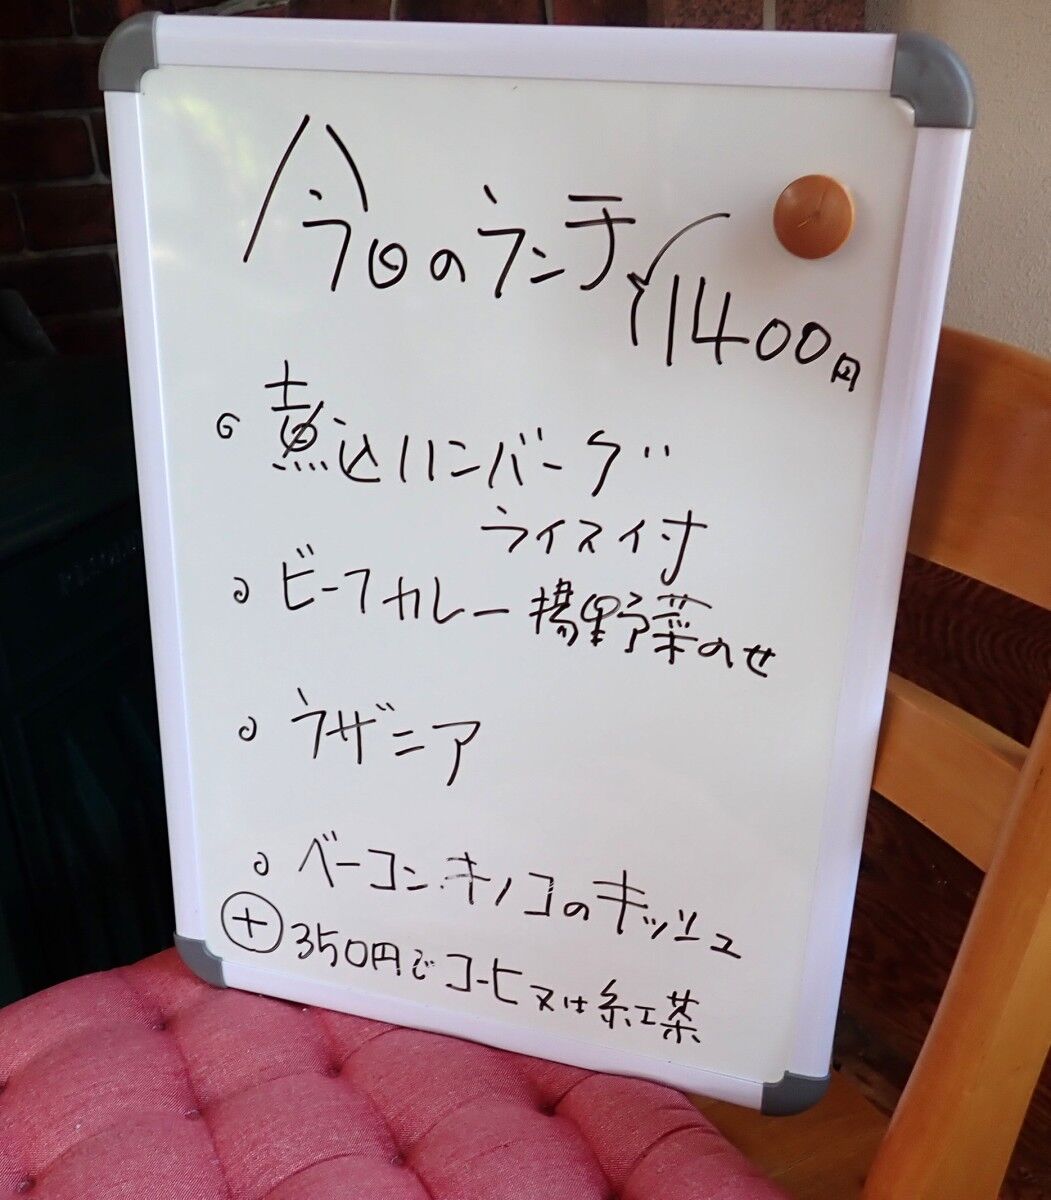 今日のランチ
1400円
煮込ハンバーグ
ライス付
ビーフカレー 揚野菜のせ
ラザニア
ベーコン.キノコのキッシュ
+ 350円でコーヒ又は紅茶